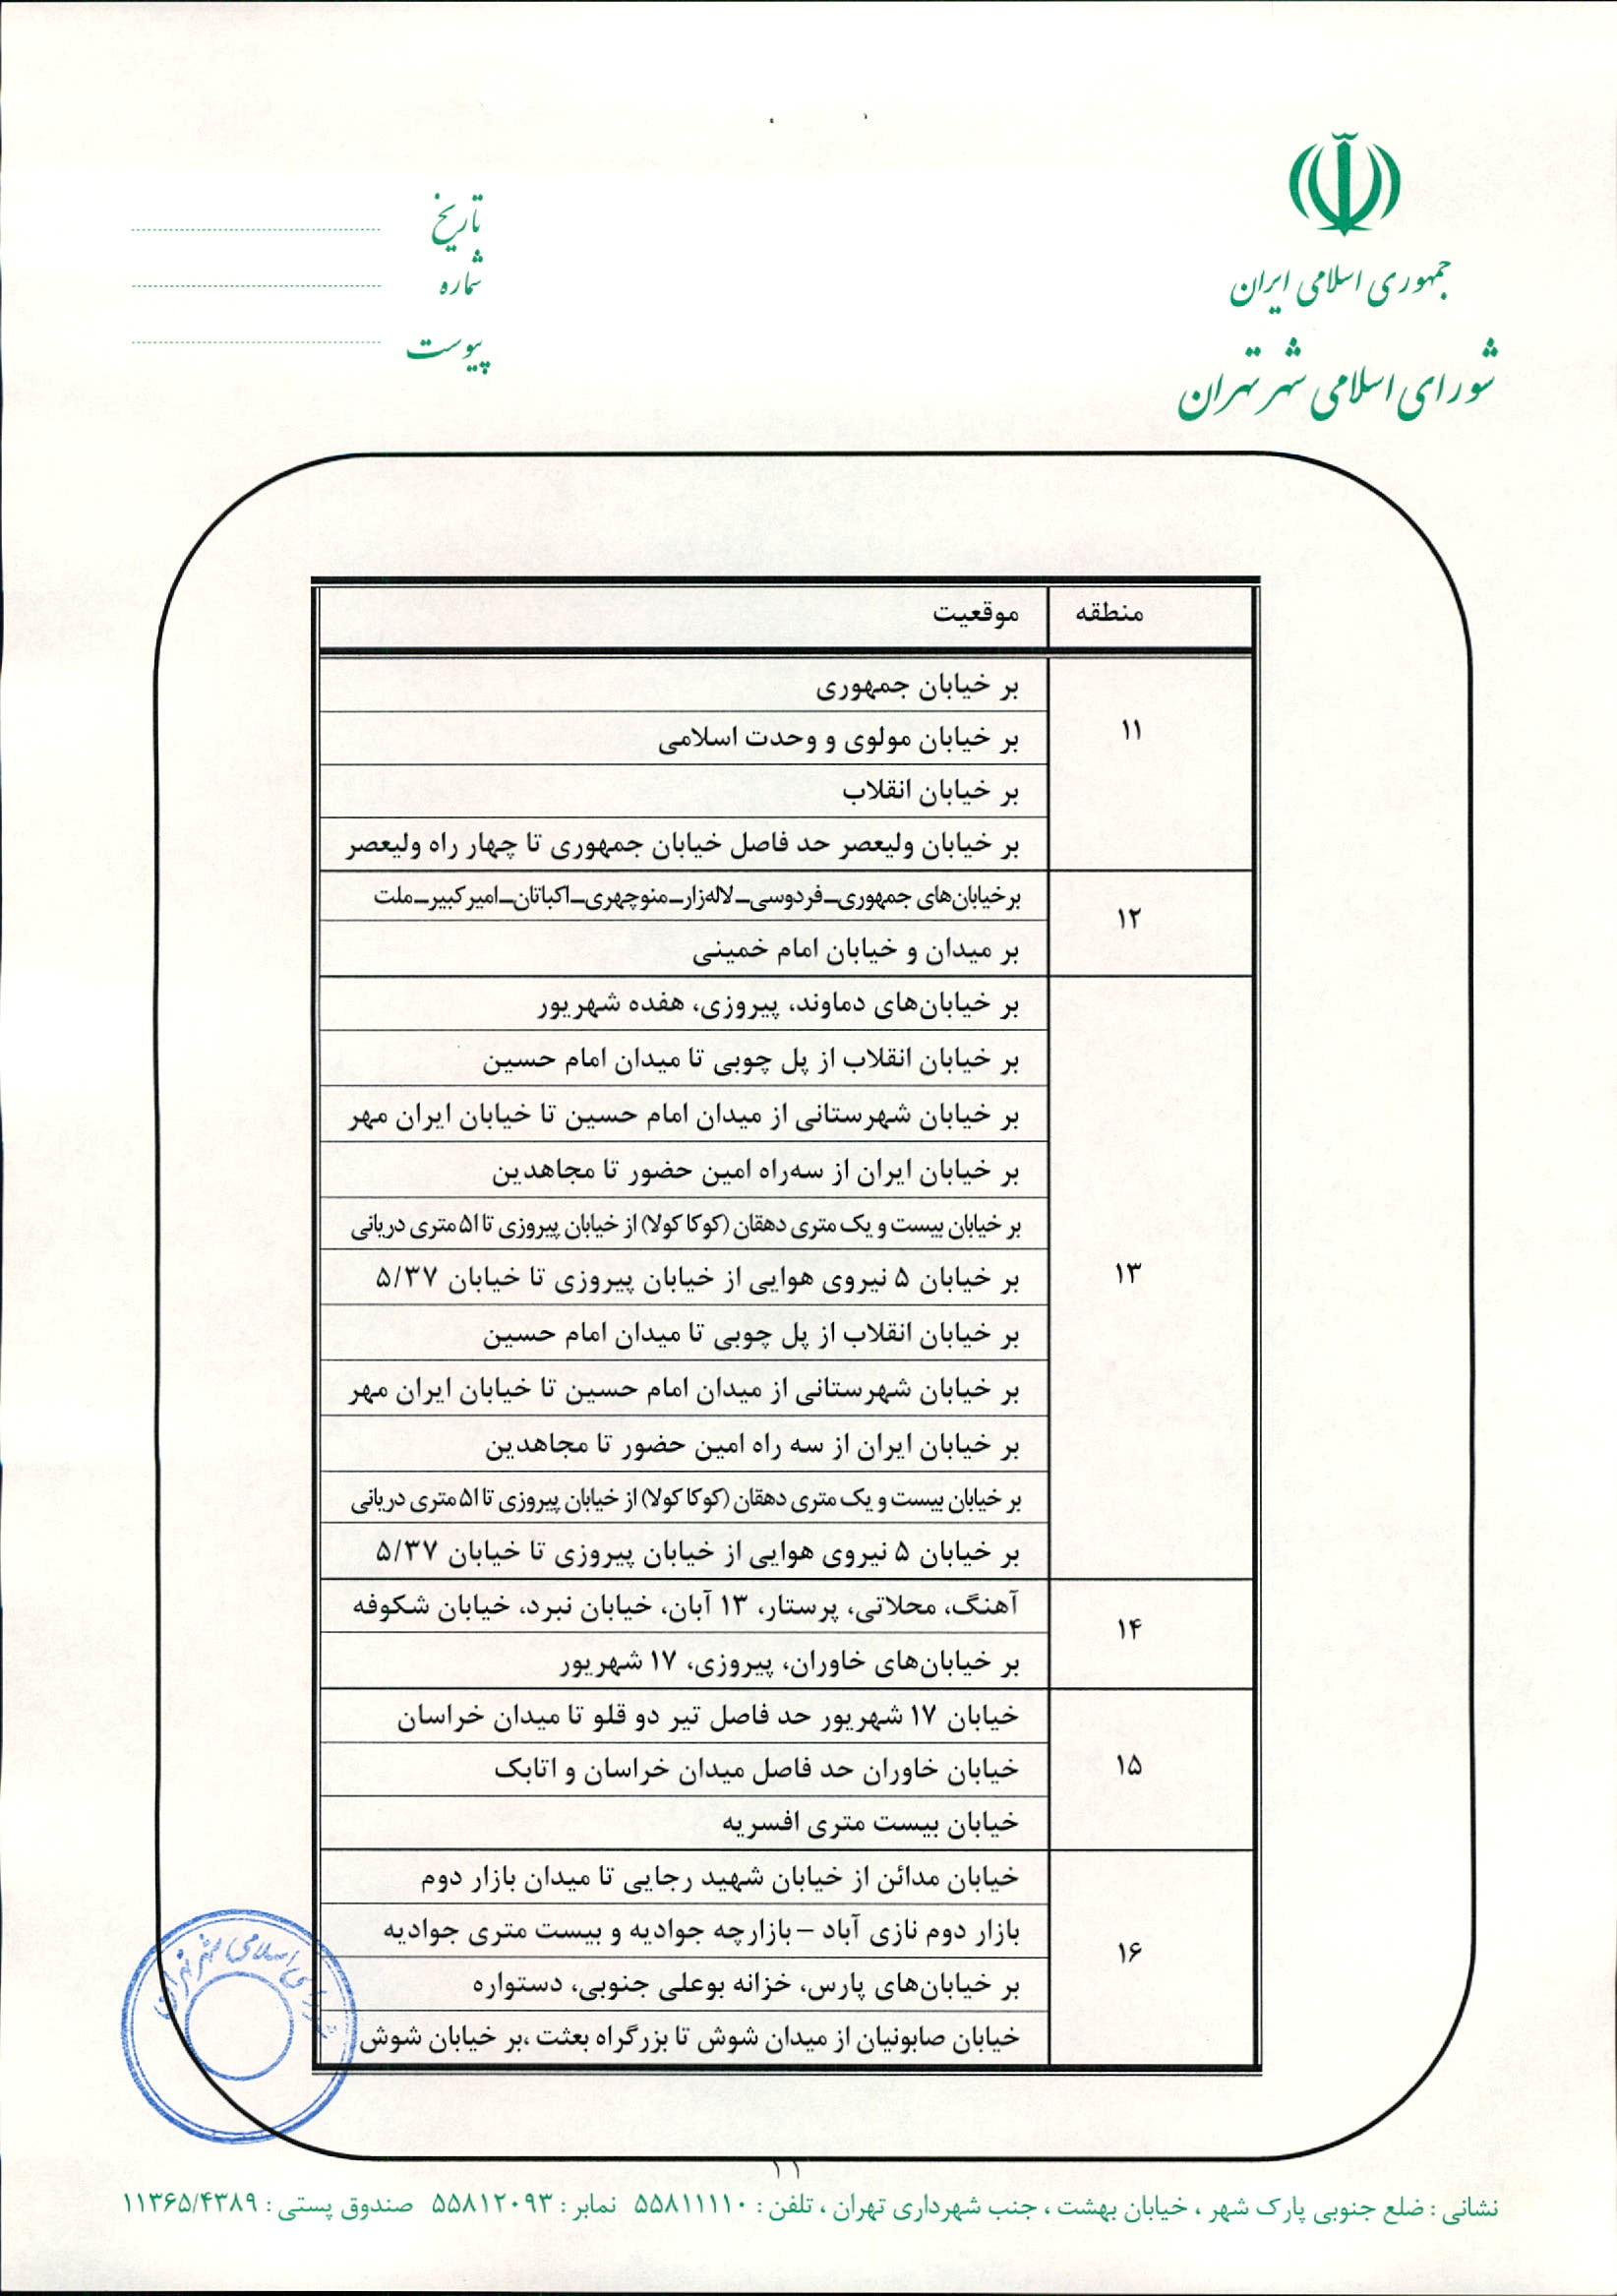 جمهوری اسلامی ایران
شورای اسلامی شهر تهران
تاریخ
شماره
پیوست
منطقه موقعیت
۱۱
بر خیابان جمهوری
بر خیابان مولوی و وحدت اسلامی
بر خیابان انقلاب
بر خیابان ولیعصر حد فاصل خیابان جمهوری تا چهار راه ولیعصر
۱۲
برخیابان‌های جمهوری_فردوسی_لاله‌زار_منوچهری_اکباتان_امیرکبیر_ملت
بر میدان و خیابان امام خمینی
۱۳
بر خیابان‌های دماوند، پیروزی، هفده شهریور
بر خیابان انقلاب از پل چوبی تا میدان امام حسین
بر خیابان شهرستانی از میدان امام حسین تا خیابان ایران مهر
بر خیابان ایران از سه‌راه امین حضور تا مجاهدین
بر خیابان بیست و یک متری دهقان (کوکا کولا) از خیابان پیروزی تا ۵۱ متری دریانی
بر خیابان ۵ نیروی هوایی از خیابان پیروزی تا خیابان ۵/۳۷
بر خیابان انقلاب از پل چوبی تا میدان امام حسین
بر خیابان شهرستانی از میدان امام حسین تا خیابان ایران مهر
بر خیابان ایران از سه راه امین حضور تا مجاهدین
بر خیابان بیست و یک متری دهقان (کوکا کولا) از خیابان پیروزی تا ۵۱ متری دریانی
بر خیابان ۵ نیروی هوایی از خیابان پیروزی تا خیابان ۵/۳۷
۱۴
آهنگ، محلاتی، پرستار، ۱۳ آبان، خیابان نبرد، خیابان شکوفه
بر خیابان‌های خاوران، پیروزی، ۱۷ شهریور
۱۵
خیابان ۱۷ شهریور حد فاصل تیر دو قلو تا میدان خراسان
خیابان خاوران حد فاصل میدان خراسان و اتابک
خیابان بیست متری افسریه
۱۶
خیابان مدائن از خیابان شهید رجایی تا میدان بازار دوم
بازار دوم نازی آباد – بازارچه جوادیه و بیست متری جوادیه
بر خیابان‌های پارس، خزانه بوعلی جنوبی، دستواره
خیابان صابونیان از میدان شوش تا بزرگراه بعثت ،بر خیابان شوش
شورای اسلامی شهر تهران
۱۱
نشانی : ضلع جنوبی پارک شهر ، خیابان بهشت ، جنب شهرداری تهران ، تلفن : ۵۵۸۱۱۱۱۰ نمابر : ۵۵۸۱۲۰۹۳ صندوق پستی : ۱۱۳۶۵/۴۳۸۹